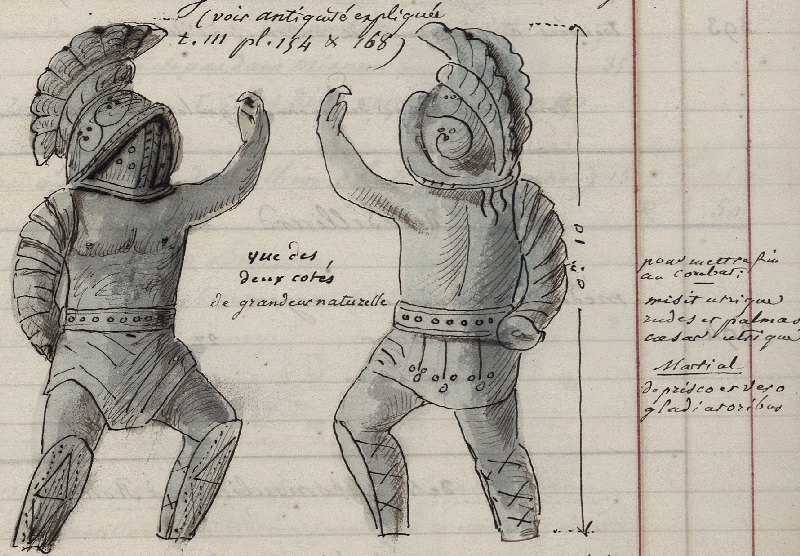 (voir antiquité expliquée
t. III pl. 154 & 168)
vue des
deux cotés
de grandeur naturelle
0.m 10
pour mettre fin
au combat;
misit utrique
rudes et palmas
cæsar utrique
Martial
de prisco et vero
gladiatoribus